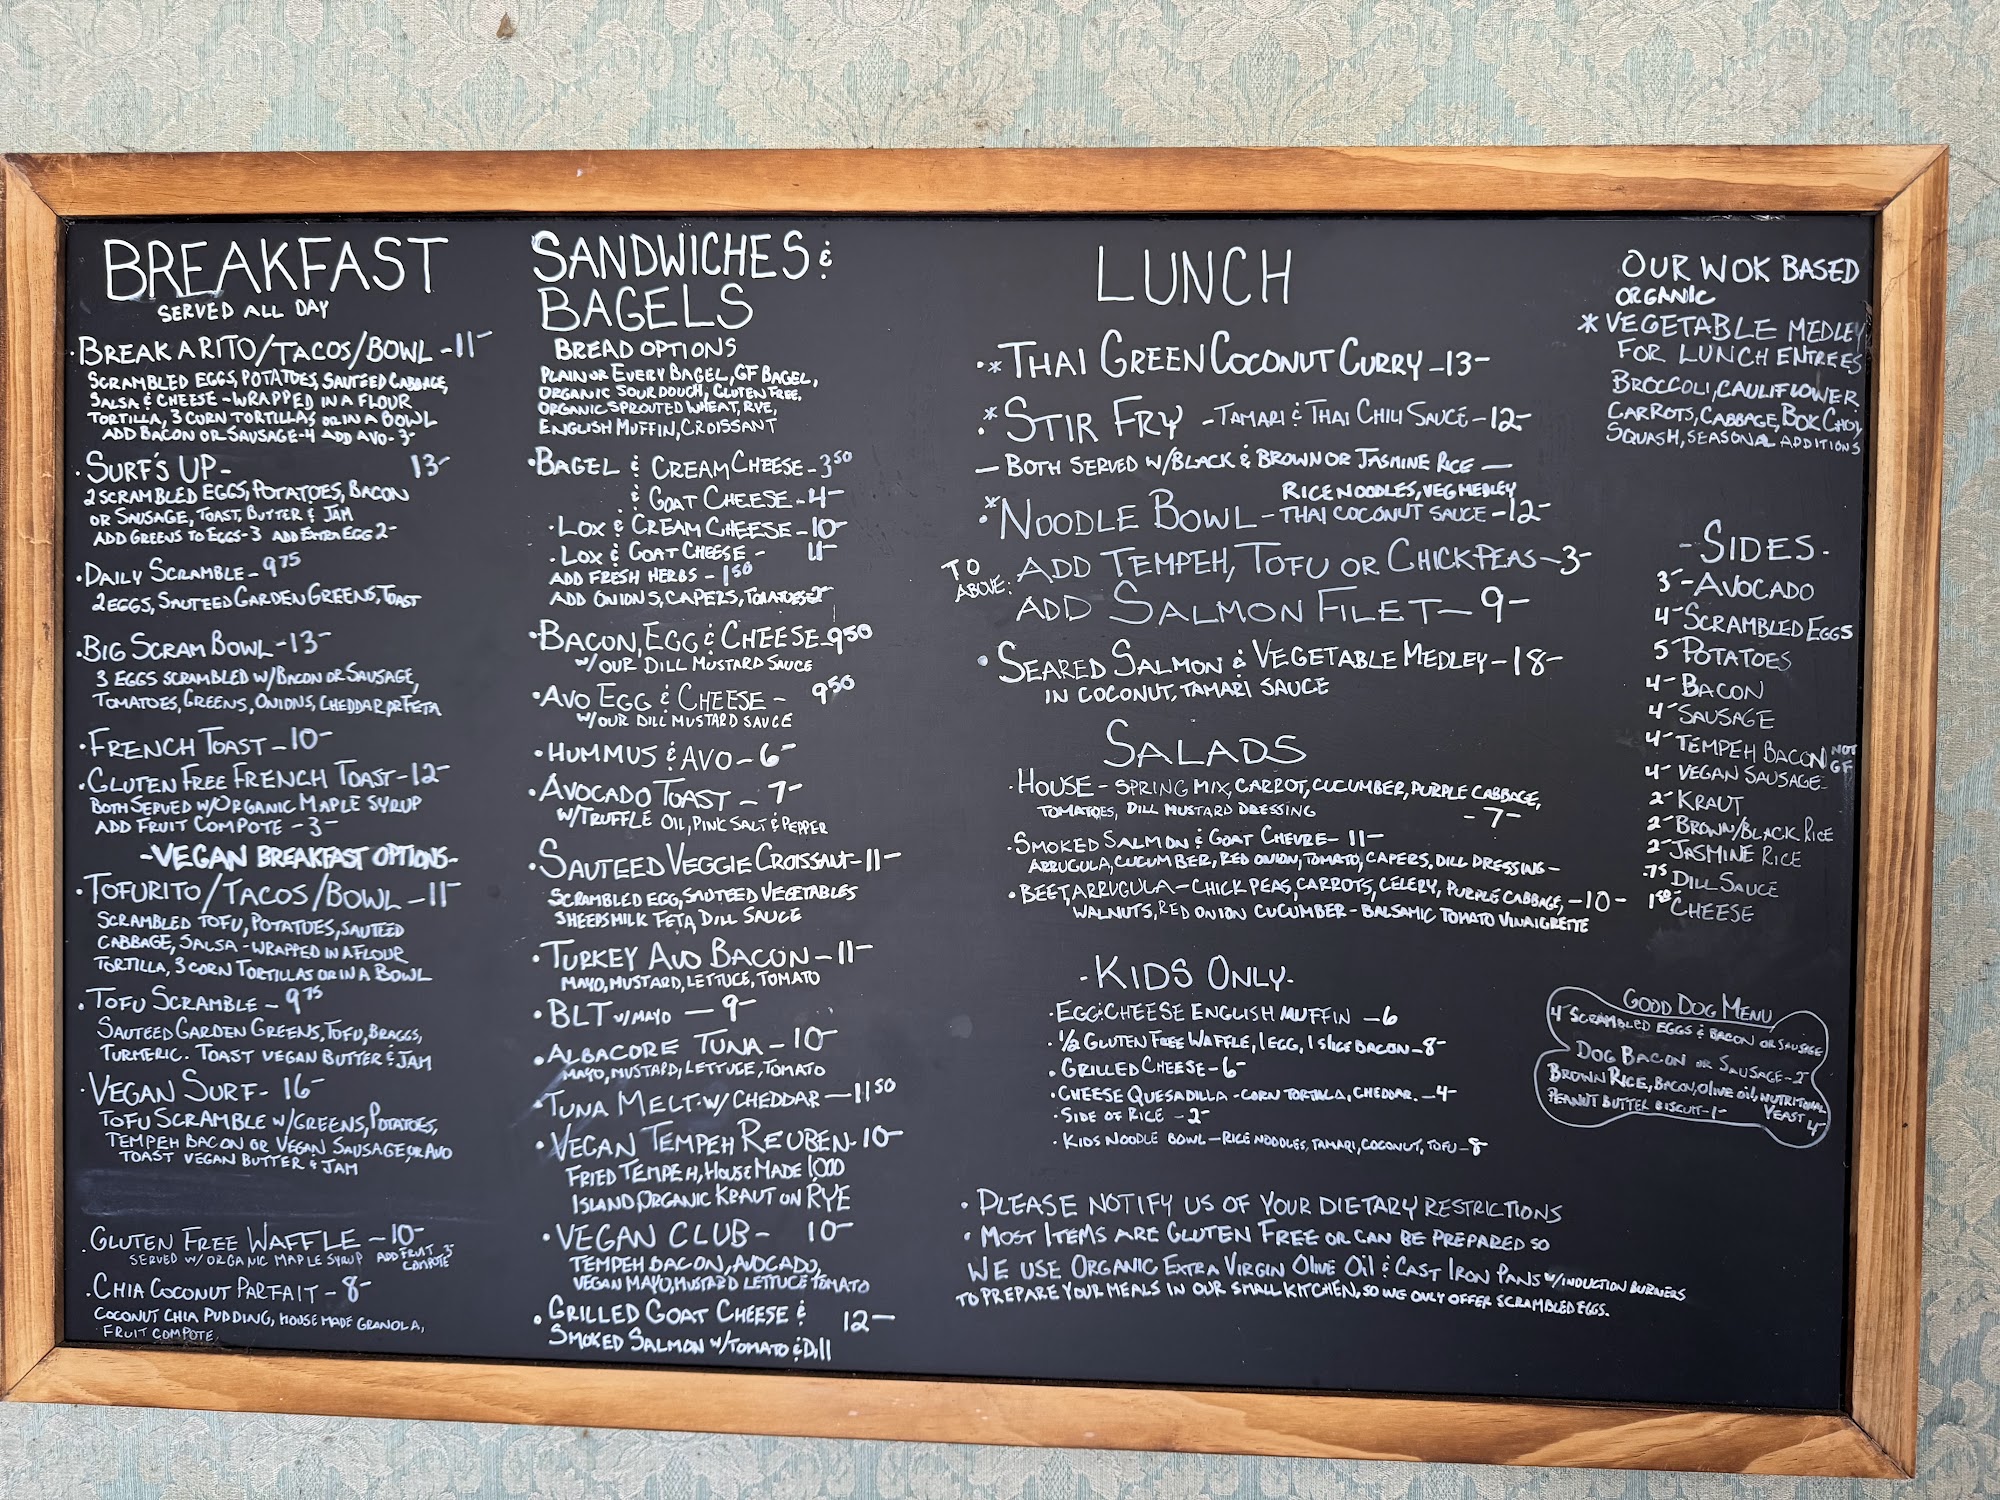 BREAKFAST
SERVED ALL DAY
·BREAKARITO/TACOS/BOWL -11-
SCRAMBLED EGGS, POTATOES, SAUTEED CABBAGE,
SALSA & CHEESE - WRAPPED IN A FLOUR
TORTILLA, 3 CORN TORTILLAS OR IN A BOWL
ADD BACON OR SAUSAGE-4 ADD AVO-3-
·SURF'S UP- 13-
2 SCRAMBLED EGGS, POTATOES, BACON
OR SAUSAGE, TOAST, BUTTER & JAM
ADD GREENS TO EGGS-3 ADD EXTRA EGG 2-
·DAILY SCRAMBLE-9 75
2 EGGS, SAUTEED GARDEN GREENS, TOAST
·BIG SCRAM BOWL-13-
3 EGGS SCRAMBLED W/BACON OR SAUSAGE,
TOMATOES, GREENS, ONIONS, CHEDDAR OR FETA
·FRENCH TOAST-10-
·GLUTEN FREE FRENCH TOAST-12-
BOTH SERVED W/ORGANIC MAPLE SYRUP
ADD FRUIT COMPOTE -3-
-VEGAN BREAKFAST OPTIONS-
·TOFURITO/TACOS/BOWL-11-
SCRAMBLED TOFU, POTATOES, SAUTEED
CABBAGE, SALSA - WRAPPED IN A FLOUR
TORTILLA, 3 CORN TORTILLAS OR IN A BOWL
·TOFU SCRAMBLE-9 75
SAUTEED GARDEN GREENS, TOFU, BRAGGS,
TURMERIC. TOAST VEGAN BUTTER & JAM
·VEGAN SURF-16-
TOFU SCRAMBLE W/GREENS, POTATOES,
TEMPEH BACON OR VEGAN SAUSAGE, OR AVO
TOAST VEGAN BUTTER & JAM
·GLUTEN FREE WAFFLE -10-
SERVED W/ ORGANIC MAPLE SYRUP ADD FRUIT COMPOTE 3-
·CHIA COCONUT PARFAIT -8-
COCONUT CHIA PUDDING, HOUSE MADE GRANOLA,
FRUIT COMPOTE
SANDWICHES &
BAGELS
BREAD OPTIONS
PLAIN OR EVERY BAGEL, GF BAGEL,
ORGANIC SOURDOUGH, GLUTEN FREE,
ORGANIC SPROUTED WHEAT, RYE,
ENGLISH MUFFIN, CROISSANT
·BAGEL & CREAM CHEESE-3 50
& GOAT CHEESE-4-
·LOX & CREAM CHEESE-10-
·LOX & GOAT CHEESE - 11-
ADD FRESH HERBS -1 50
ADD ONIONS, CAPERS, TOMATOES 2-
·BACON, EGG & CHEESE-9 50
W/OUR DILL MUSTARD SAUCE
·AVO EGG & CHEESE - 9 50
W/OUR DILL MUSTARD SAUCE
·HUMMUS & AVO-6-
·AVOCADO TOAST - 7-
W/TRUFFLE OIL, PINK SALT & PEPPER
·SAUTEED VEGGIE CROISSANT-11-
SCRAMBLED EGG, SAUTEED VEGETABLES
SHEEPSMILK FETA, DILL SAUCE
·TURKEY AVO BACON-11-
MAYO, MUSTARD, LETTUCE, TOMATO
·BLT W/MAYO -9-
·ALBACORE TUNA-10-
MAYO, MUSTARD, LETTUCE, TOMATO
·TUNA MELT·W/CHEDDAR-11 50
·VEGAN TEMPEH REUBEN-10-
FRIED TEMPEH, HOUSE MADE 1,000
ISLAND, ORGANIC KRAUT ON RYE
·VEGAN CLUB- 10-
TEMPEH BACON, AVOCADO,
VEGAN MAYO, MUSTARD LETTUCE TOMATO
·GRILLED GOAT CHEESE & 12-
SMOKED SALMON W/TOMATO & DILL
LUNCH
·*THAI GREEN COCONUT CURRY-13-
·*STIR FRY -TAMARI & THAI CHILI SAUCE-12-
-BOTH SERVED W/BLACK & BROWN OR JASMINE RICE-
RICE NOODLES, VEG MEDLEY
·*NOODLE BOWL-THAI COCONUT SAUCE-12-
TO ABOVE: ADD TEMPEH, TOFU OR CHICKPEAS-3-
ADD SALMON FILET-9-
·SEARED SALMON & VEGETABLE MEDLEY-18-
IN COCONUT, TAMARI SAUCE
SALADS
·HOUSE - SPRING MIX, CARROT, CUCUMBER, PURPLE CABBAGE,
TOMATOES, DILL MUSTARD DRESSING -7-
·SMOKED SALMON & GOAT CHEVRE-11-
ARRUGULA, CUCUMBER, RED ONION, TOMATO, CAPERS, DILL DRESSING-
·BEET, ARRUGULA-CHICK PEAS, CARROTS, CELERY, PURPLE CABBAGE,-10-
WALNUTS, RED ONION CUCUMBER-BALSAMIC TOMATO VINAIGRETTE
-KIDS ONLY-
·EGG & CHEESE ENGLISH MUFFIN -6
·1/2 GLUTEN FREE WAFFLE, 1 EGG, 1 SLICE BACON-8-
·GRILLED CHEESE-6-
·CHEESE QUESADILLA-CORN TORTILLA, CHEDDAR.-4-
·SIDE OF RICE -2-
·KIDS NOODLE BOWL-RICE NOODLES, TAMARI, COCONUT, TOFU-8
·PLEASE NOTIFY US OF YOUR DIETARY RESTRICTIONS
·MOST ITEMS ARE GLUTEN FREE OR CAN BE PREPARED SO
WE USE ORGANIC EXTRA VIRGIN OLIVE OIL & CAST IRON PANS W/INDUCTION BURNERS
TO PREPARE YOUR MEALS IN OUR SMALL KITCHEN, SO WE ONLY OFFER SCRAMBLED EGGS.
OUR WOK BASED
ORGANIC
*VEGETABLE MEDLEY
FOR LUNCH ENTREES
BROCCOLI, CAULIFLOWER
CARROTS, CABBAGE, BOK CHOY,
SQUASH, SEASONAL ADDITIONS
-SIDES-
3-AVOCADO
4-SCRAMBLED EGGS
5-POTATOES
4-BACON
4-SAUSAGE
4-TEMPEH BACON NOT GF
4-VEGAN SAUSAGE
2-KRAUT
2-BROWN/BLACK RICE
2-JASMINE RICE
.75 DILL SAUCE
1 50 CHEESE
GOOD DOG MENU
4-SCRAMBLED EGGS & BACON OR SAUSAGE
DOG BACON OR SAUSAGE-2-
BROWN RICE, BACON, OLIVE OIL, NUTRITIONAL
YEAST 4-
PEANUT BUTTER BISCUIT-1-